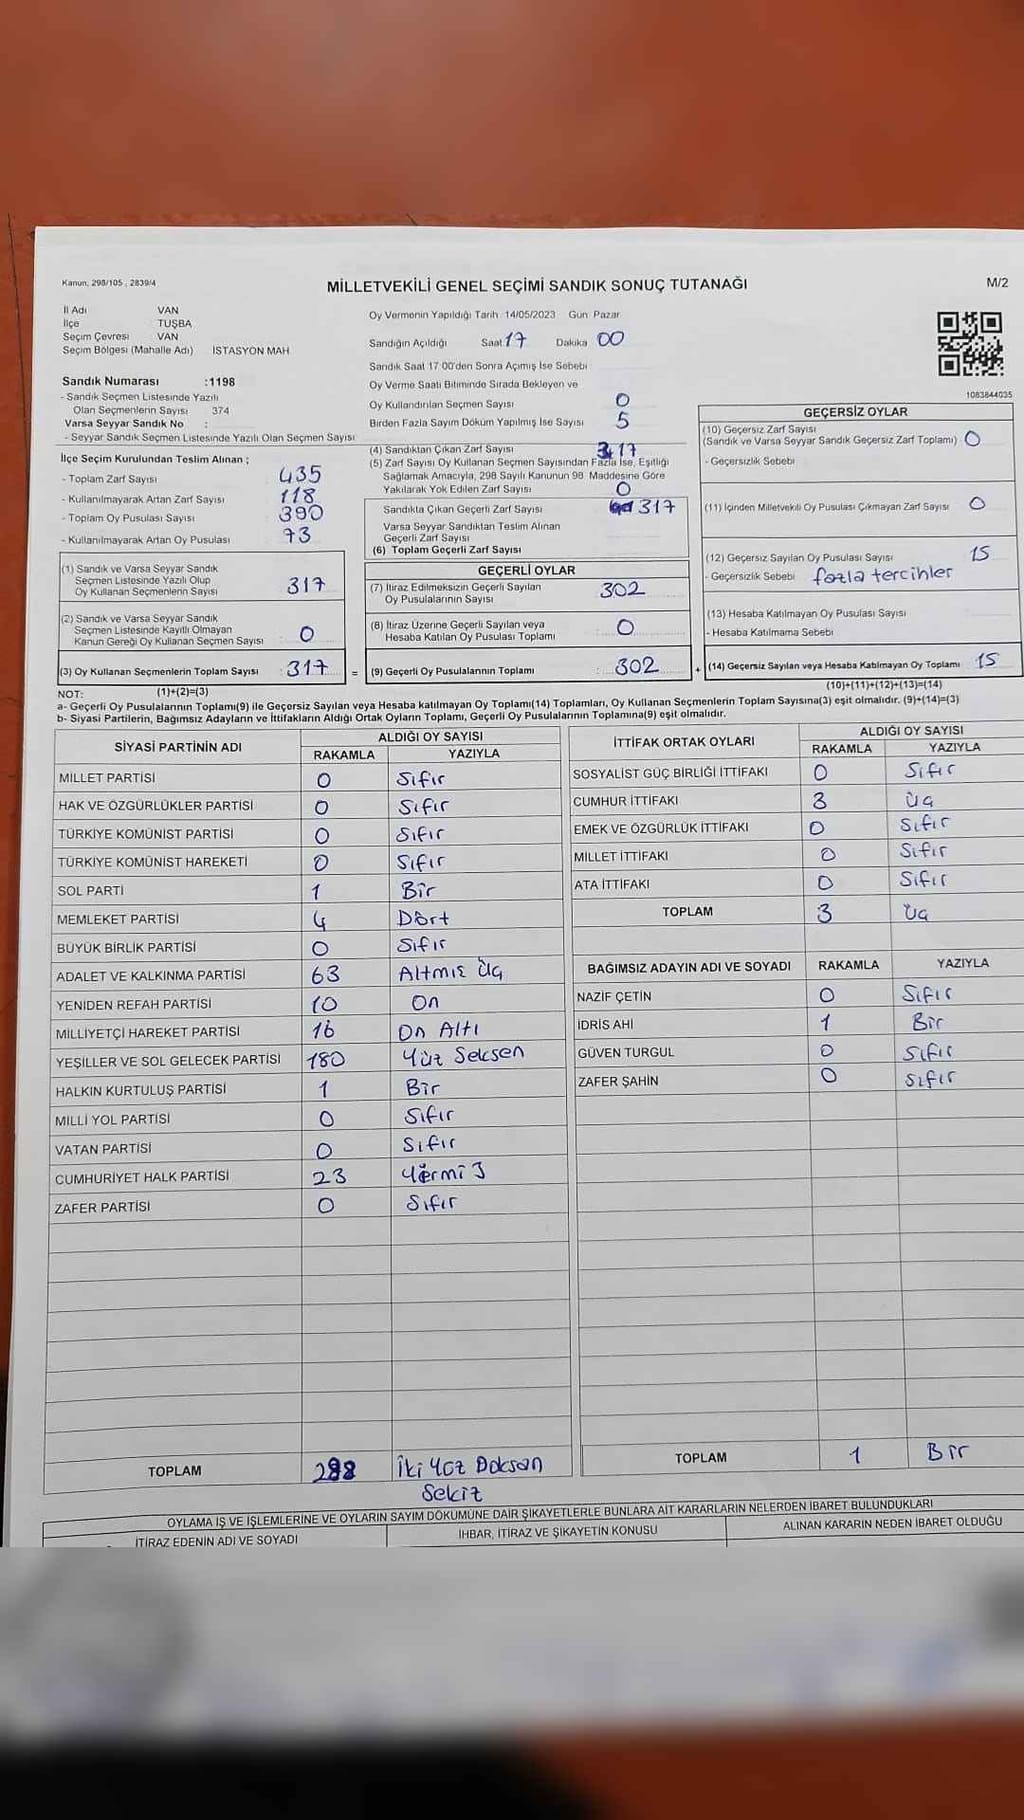 Kanun, 298/105 , 2839/4
MİLLETVEKİLİ GENEL SEÇİMİ SANDIK SONUÇ TUTANAĞI
M/2
İl Adı VAN
İlçe TUŞBA
Seçim Çevresi VAN
Seçim Bölgesi (Mahalle Adı) İSTASYON MAH
Sandık Numarası :1198
- Sandık Seçmen Listesinde Yazılı
Olan Seçmenlerin Sayısı 374
Varsa Seyyar Sandık No :
- Seyyar Sandık Seçmen Listesinde Yazılı Olan Seçmen Sayısı
İlçe Seçim Kurulundan Teslim Alınan ;
- Toplam Zarf Sayısı 435
- Kullanılmayarak Artan Zarf Sayısı 118
- Toplam Oy Pusulası Sayısı 390
- Kullanılmayarak Artan Oy Pusulası 73
(1) Sandık ve Varsa Seyyar Sandık
Seçmen Listesinde Yazılı Olup
Oy Kullanan Seçmenlerin Sayısı 317
(2) Sandık ve Varsa Seyyar Sandık
Seçmen Listesinde Kayıtlı Olmayan
Kanun Gereği Oy Kullanan Seçmen Sayısı 0
(3) Oy Kullanan Seçmenlerin Toplam Sayısı 317 =
Oy Vermenin Yapıldığı Tarih 14/05/2023 Gün Pazar
Sandığın Açıldığı Saat 17 Dakika 00
Sandık Saat 17 00'den Sonra Açımış İse Sebebi
Oy Verme Saati Bitiminde Sırada Bekleyen ve
Oy Kullandırılan Seçmen Sayısı 0
Birden Fazla Sayım Döküm Yapılmış İse Sayısı 5
(4) Sandıktan Çıkan Zarf Sayısı 317
(5) Zarf Sayısı Oy Kullanan Seçmen Sayısından Fazla İse, Eşitliği
Sağlamak Amacıyla, 298 Sayılı Kanunun 98 Maddesine Göre
Yakılarak Yok Edilen Zarf Sayısı 0
Sandıkta Çıkan Geçerli Zarf Sayısı 317
Varsa Seyyar Sandıktan Teslim Alınan
Geçerli Zarf Sayısı
(6) Toplam Geçerli Zarf Sayısı
GEÇERLİ OYLAR
(7) İtiraz Edilmeksizin Geçerli Sayılan
Oy Pusulalarının Sayısı 302
(8) İtiraz Üzerine Geçerli Sayılan veya
Hesaba Katılan Oy Pusulası Toplamı 0
(9) Geçerli Oy Pusulalarının Toplamı 302 +
1083844035
GEÇERSİZ OYLAR
(10) Geçersiz Zarf Sayısı
(Sandık ve Varsa Seyyar Sandık Geçersiz Zarf Toplamı) 0
- Geçersizlik Sebebi
(11) İçinden Milletvekili Oy Pusulası Çıkmayan Zarf Sayısı 0
(12) Geçersiz Sayılan Oy Pusulası Sayısı 15
- Geçersizlik Sebebi fazla tercihler
(13) Hesaba Katılmayan Oy Pusulası Sayısı
- Hesaba Katılmama Sebebi
(14) Geçersiz Sayılan veya Hesaba Katılmayan Oy Toplamı 15
NOT: (1)+(2)=(3) (10)+(11)+(12)+(13)=(14)
a- Geçerli Oy Pusulalarının Toplamı(9) ile Geçersiz Sayılan veya Hesaba katılmayan Oy Toplamı(14) Toplamları, Oy Kullanan Seçmenlerin Toplam Sayısına(3) eşit olmalıdır. (9)+(14)=(3)
b- Siyasi Partilerin, Bağımsız Adayların ve İttifakların Aldığı Ortak Oyların Toplamı, Geçerli Oy Pusulalarının Toplamına(9) eşit olmalıdır.
SİYASİ PARTİNİN ADI ALDIĞI OY SAYISI
RAKAMLA YAZIYLA
MİLLET PARTİSİ 0 Sıfır
HAK VE ÖZGÜRLÜKLER PARTİSİ 0 Sıfır
TÜRKİYE KOMÜNİST PARTİSİ 0 Sıfır
TÜRKİYE KOMÜNİST HAREKETİ 0 Sıfır
SOL PARTİ 1 Bir
MEMLEKET PARTİSİ 4 Dört
BÜYÜK BİRLİK PARTİSİ 0 Sıfır
ADALET VE KALKINMA PARTİSİ 63 Altmış Üç
YENİDEN REFAH PARTİSİ 10 On
MİLLİYETÇİ HAREKET PARTİSİ 16 On Altı
YEŞİLLER VE SOL GELECEK PARTİSİ 180 Yüz Seksen
HALKIN KURTULUŞ PARTİSİ 1 Bir
MİLLİ YOL PARTİSİ 0 Sıfır
VATAN PARTİSİ 0 Sıfır
CUMHURİYET HALK PARTİSİ 23 Yirmi 3
ZAFER PARTİSİ 0 Sıfır
TOPLAM 298 İki Yüz Doksan
Sekiz
İTTİFAK ORTAK OYLARI ALDIĞI OY SAYISI
RAKAMLA YAZIYLA
SOSYALİST GÜÇ BİRLİĞİ İTTİFAKI 0 Sıfır
CUMHUR İTTİFAKI 3 Üç
EMEK VE ÖZGÜRLÜK İTTİFAKI 0 Sıfır
MİLLET İTTİFAKI 0 Sıfır
ATA İTTİFAKI 0 Sıfır
TOPLAM 3 Üç
BAĞIMSIZ ADAYIN ADI VE SOYADI RAKAMLA YAZIYLA
NAZİF ÇETİN 0 Sıfır
İDRİS AHİ 1 Bir
GÜVEN TURGUL 0 Sıfır
ZAFER ŞAHİN 0 Sıfır
TOPLAM 1 Bir
OYLAMA İŞ VE İŞLEMLERİNE VE OYLARIN SAYIM DÖKÜMÜNE DAİR ŞİKAYETLERLE BUNLARA AİT KARARLARIN NELERDEN İBARET BULUNDUKLARI
İTİRAZ EDENİN ADI VE SOYADI İHBAR, İTİRAZ VE ŞİKAYETİN KONUSU ALINAN KARARIN NEDEN İBARET OLDUĞU